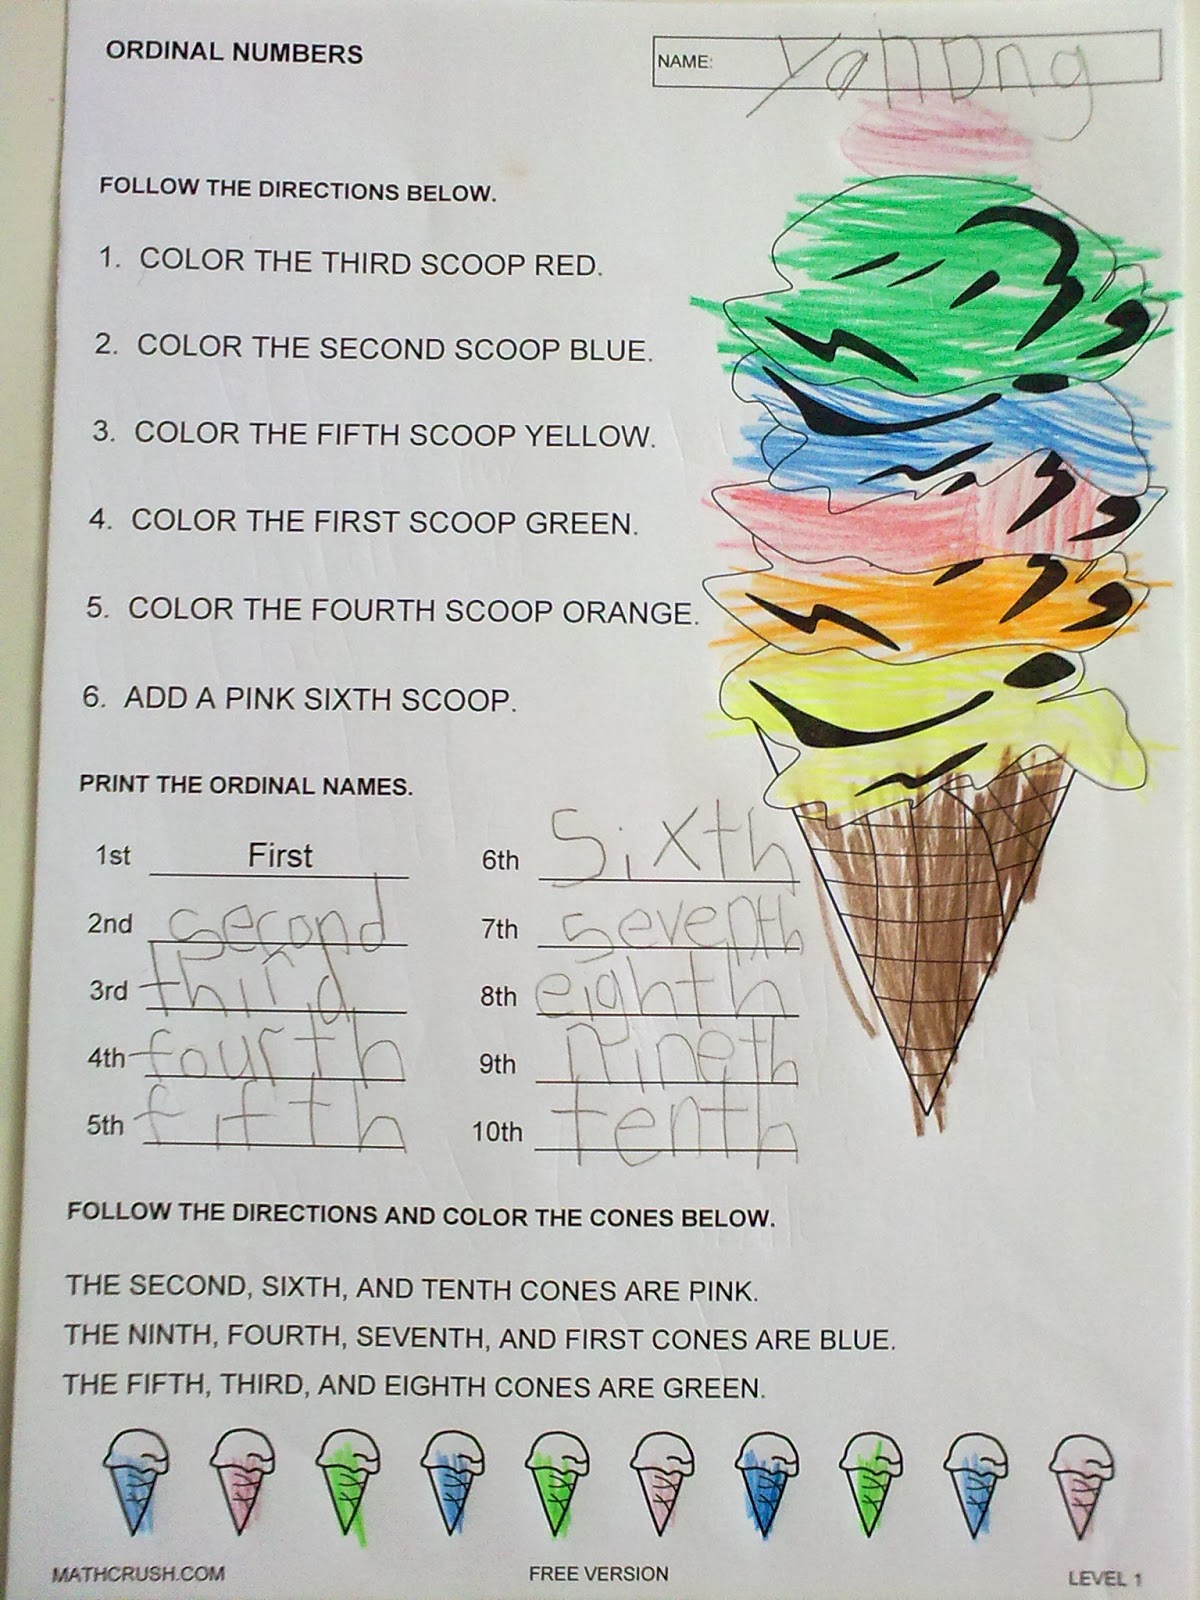 ORDINAL NUMBERS
NAME: Yahong
FOLLOW THE DIRECTIONS BELOW.
1. COLOR THE THIRD SCOOP RED.
2. COLOR THE SECOND SCOOP BLUE.
3. COLOR THE FIFTH SCOOP YELLOW.
4. COLOR THE FIRST SCOOP GREEN.
5. COLOR THE FOURTH SCOOP ORANGE.
6. ADD A PINK SIXTH SCOOP.
PRINT THE ORDINAL NAMES.
1st First
2nd second
3rd third
4th fourth
5th fifth
6th Sixth
7th seventh
8th eighth
9th nineth
10th tenth
FOLLOW THE DIRECTIONS AND COLOR THE CONES BELOW.
THE SECOND, SIXTH, AND TENTH CONES ARE PINK.
THE NINTH, FOURTH, SEVENTH, AND FIRST CONES ARE BLUE.
THE FIFTH, THIRD, AND EIGHTH CONES ARE GREEN.
MATHCRUSH.COM FREE VERSION LEVEL 1